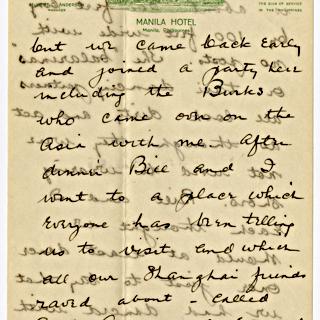 MANILA HOTEL
Manila, Philippines
but we came back early
and joined a party here
including the Burks
who came over on the
Asia with me. After
dinner Bill and I
went to a place which
everyone has been telling
us to visit and which
all our Shanghai friends
raved about - called